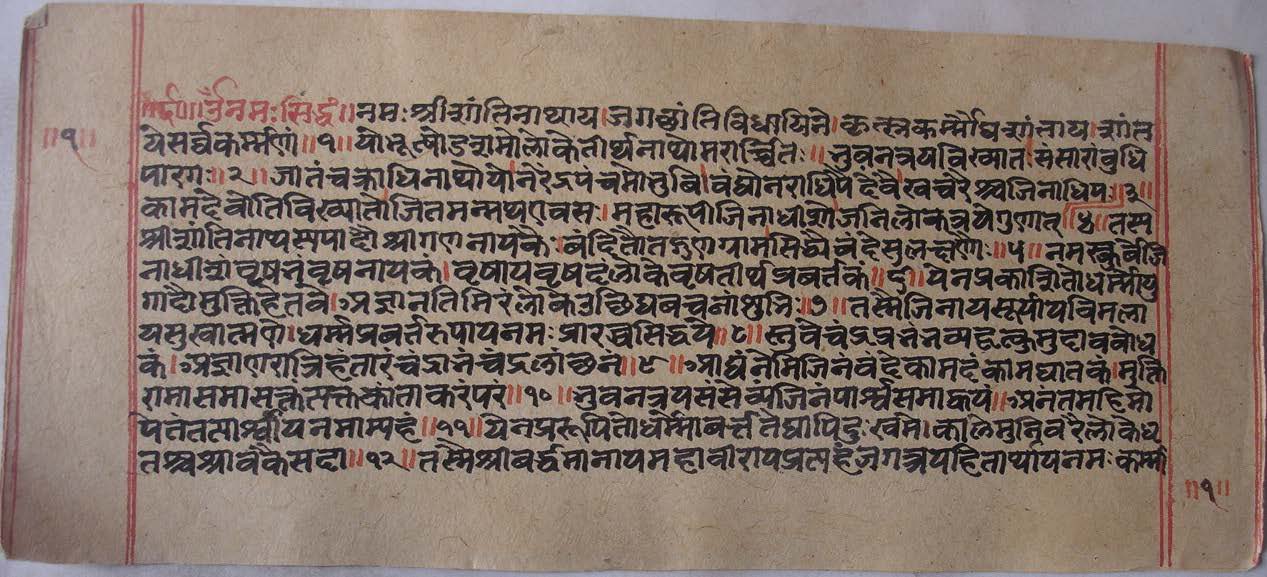 ॥ॐनमःसिद्धं॥नमःश्रीशांतिनाथाय।जगच्छांतिविधायिने।कृत्स्नकर्मौघशांताय।शांत
॥१॥
येसर्वकर्मणां॥१॥योभूत्षोडशमोलोकेतीर्थनाथोमरार्च्चितः॥भुवनत्रयविख्यातःसंसारांबुधि
पारगः॥२॥जातंचक्राधिनाथोयोनरेंद्रपंचमोभुवि।वंद्योनराधिपैर्देवैःखचरैश्चजिनाधिपः॥३॥
कामदेवोतिविख्यातोजितमन्मथ महारूपीजिनाधीशोजनिलोकत्रयेगुणात्॥४॥तस्य
श्रीशांतिनाथस्यपादौश्रीगणनायकैः।वंदितौतद्गुणग्रामसिद्ध्यैवंदेसुलक्षणैः॥५॥नमस्कुर्वेजि
नाधीशंवृषभंवृषनायकं।वृषायवृषदंलोकेवृषतीर्थप्रवर्त्तकं॥६॥येनप्रकाशितोधर्म्मोयु
गादौमुक्तिहेतवे।अज्ञानतिमिरंलोकेउच्छिद्यवचनांशुभिः॥७॥तस्मैजिनाय विमला
यसुखात्मने।धर्म्मप्रवर्त्तरूपायनमःप्रारब्धसिद्धये॥८॥स्तुवेचंद्रप्रभंभव्यहृत्कुमुदावबोध
कं।अज्ञाणरात्रिहंतारंचंद्रानंचंद्रलांछनं॥९॥आर्धनेमिजिनंवंदेकामदंकामघातकं।मुक्ति
रामासमासक्तंत्यक्तकांताकरंपरं॥१०॥भुवनत्रयसंसेव्यंजिनंपार्श्वसमाह्वयं॥अनंतमहिमो
पेतंतत्पार्श्वायनमाम्यहं॥११॥येनप्ररूपितोधर्म्मोवर्त्ततेद्यापिदुःखमे।कालेमुनिवरैर्लोकेध
तश्चश्रावकैःसदा॥१२॥तस्मैश्रीवर्द्धमानायमहावीरायप्रत्यहंजगत्त्रयहितार्थायनमःकर्म्मा
॥१॥